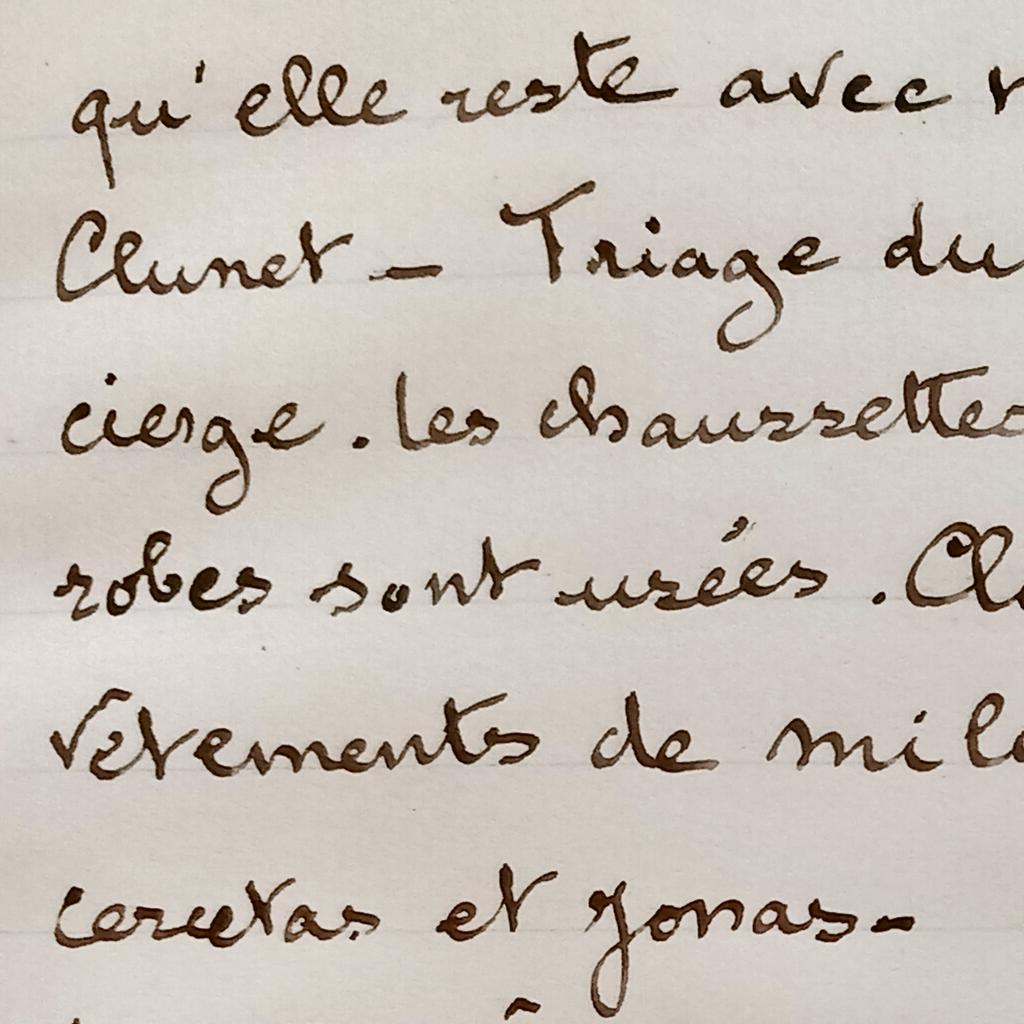 qu'elle reste avec
Clunet — Triage du
cierge. les chaussettes
robes sont usées.
Vetements de
et Jonas-